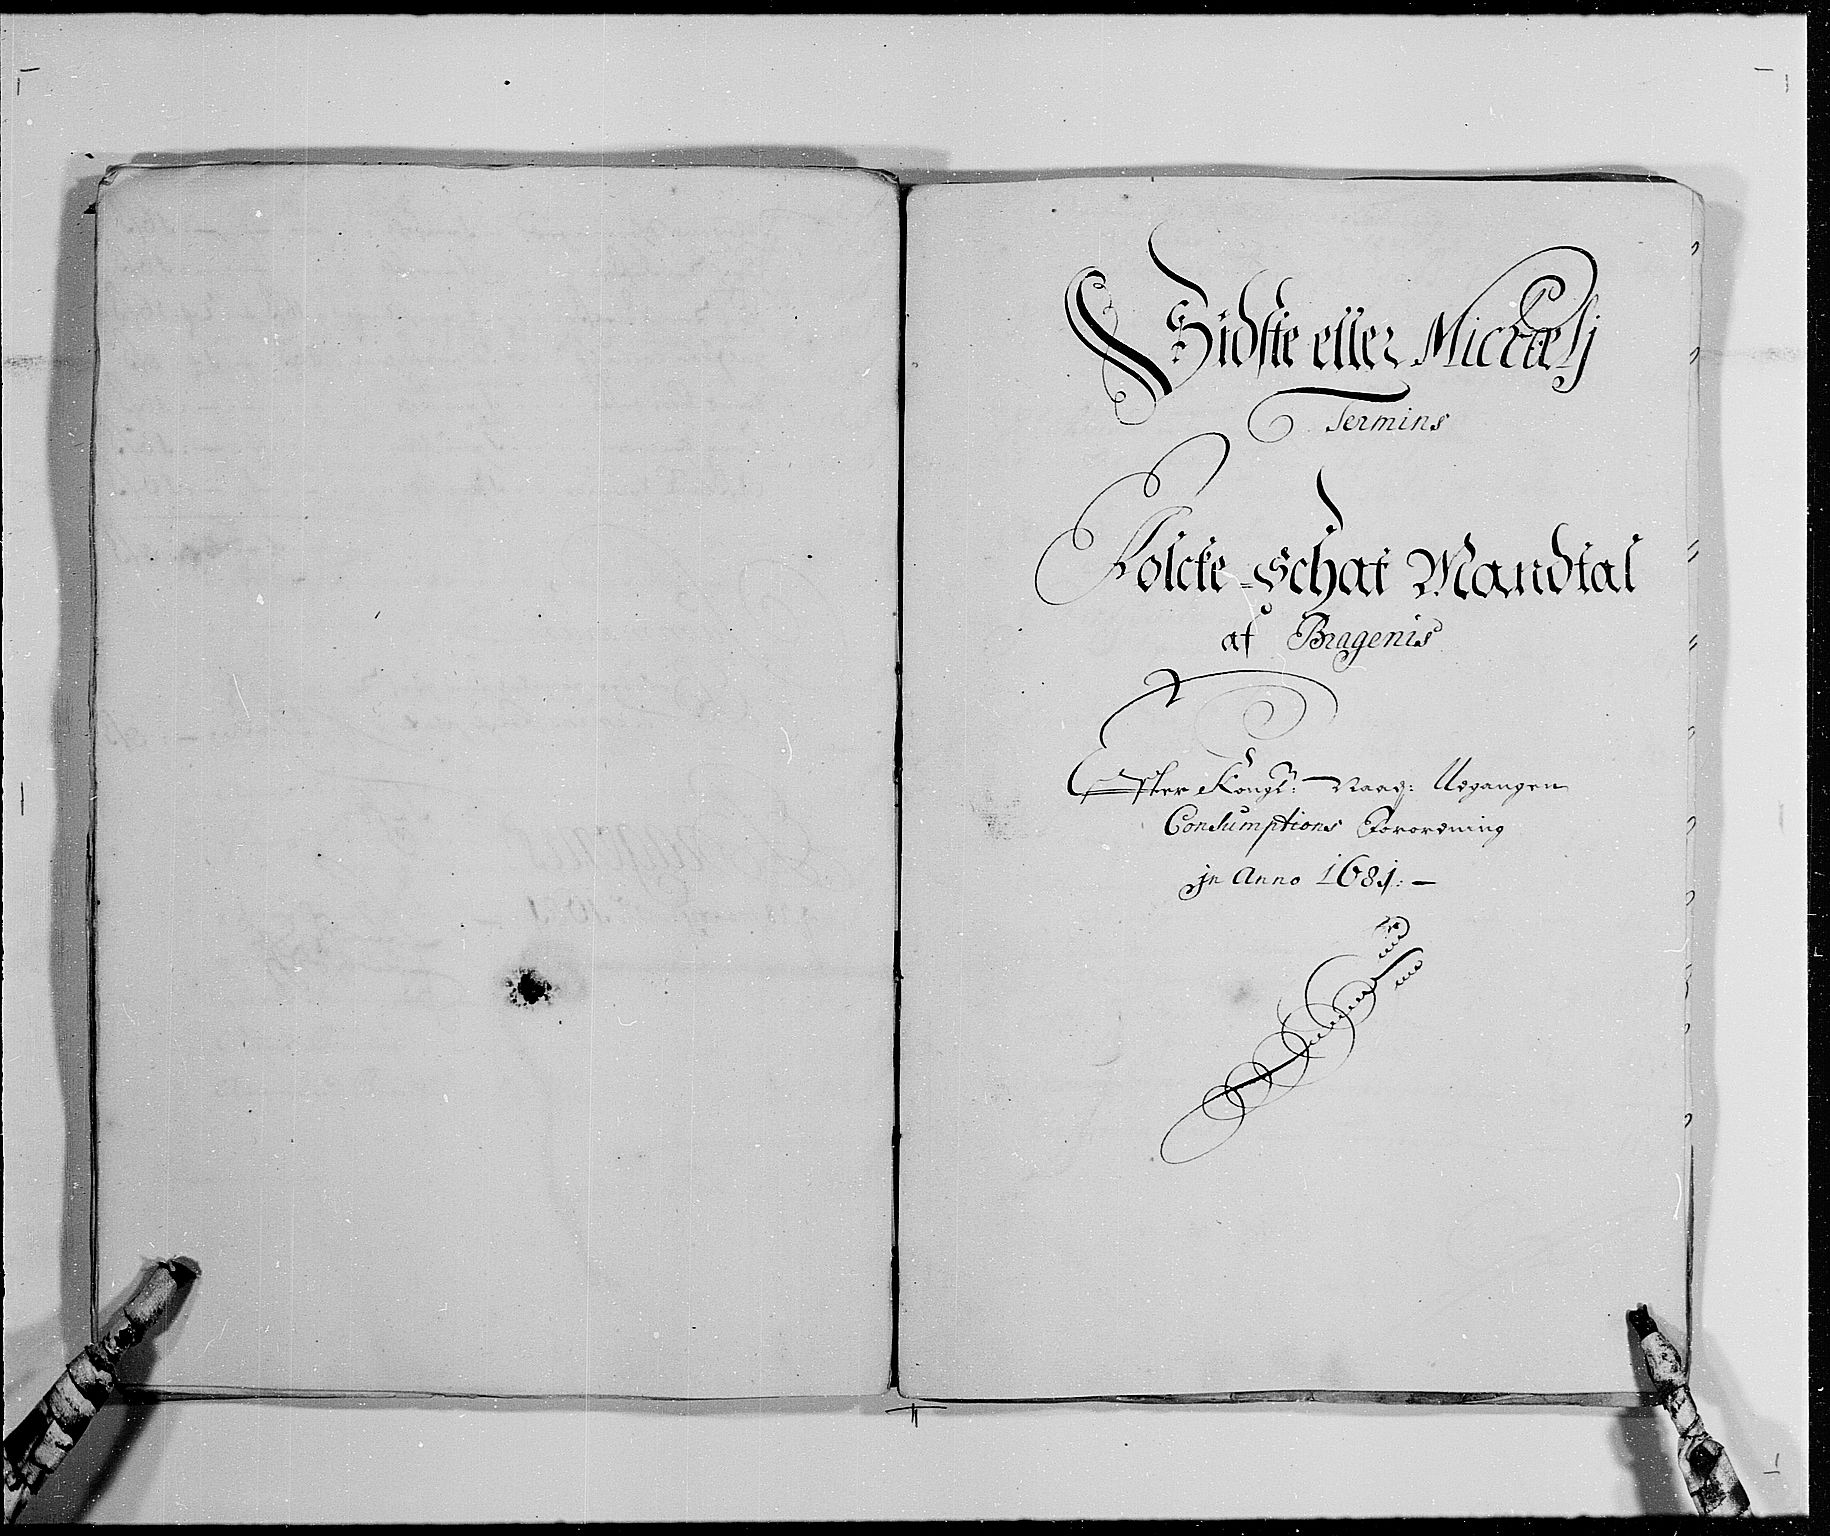 Sidste eller Michaelj
Termins
Folcke-Schat Mandtal
af Bragenis
Efter Kongl: Maay: Udgangen
Consumptions Forordning
jn Anno 1681:—